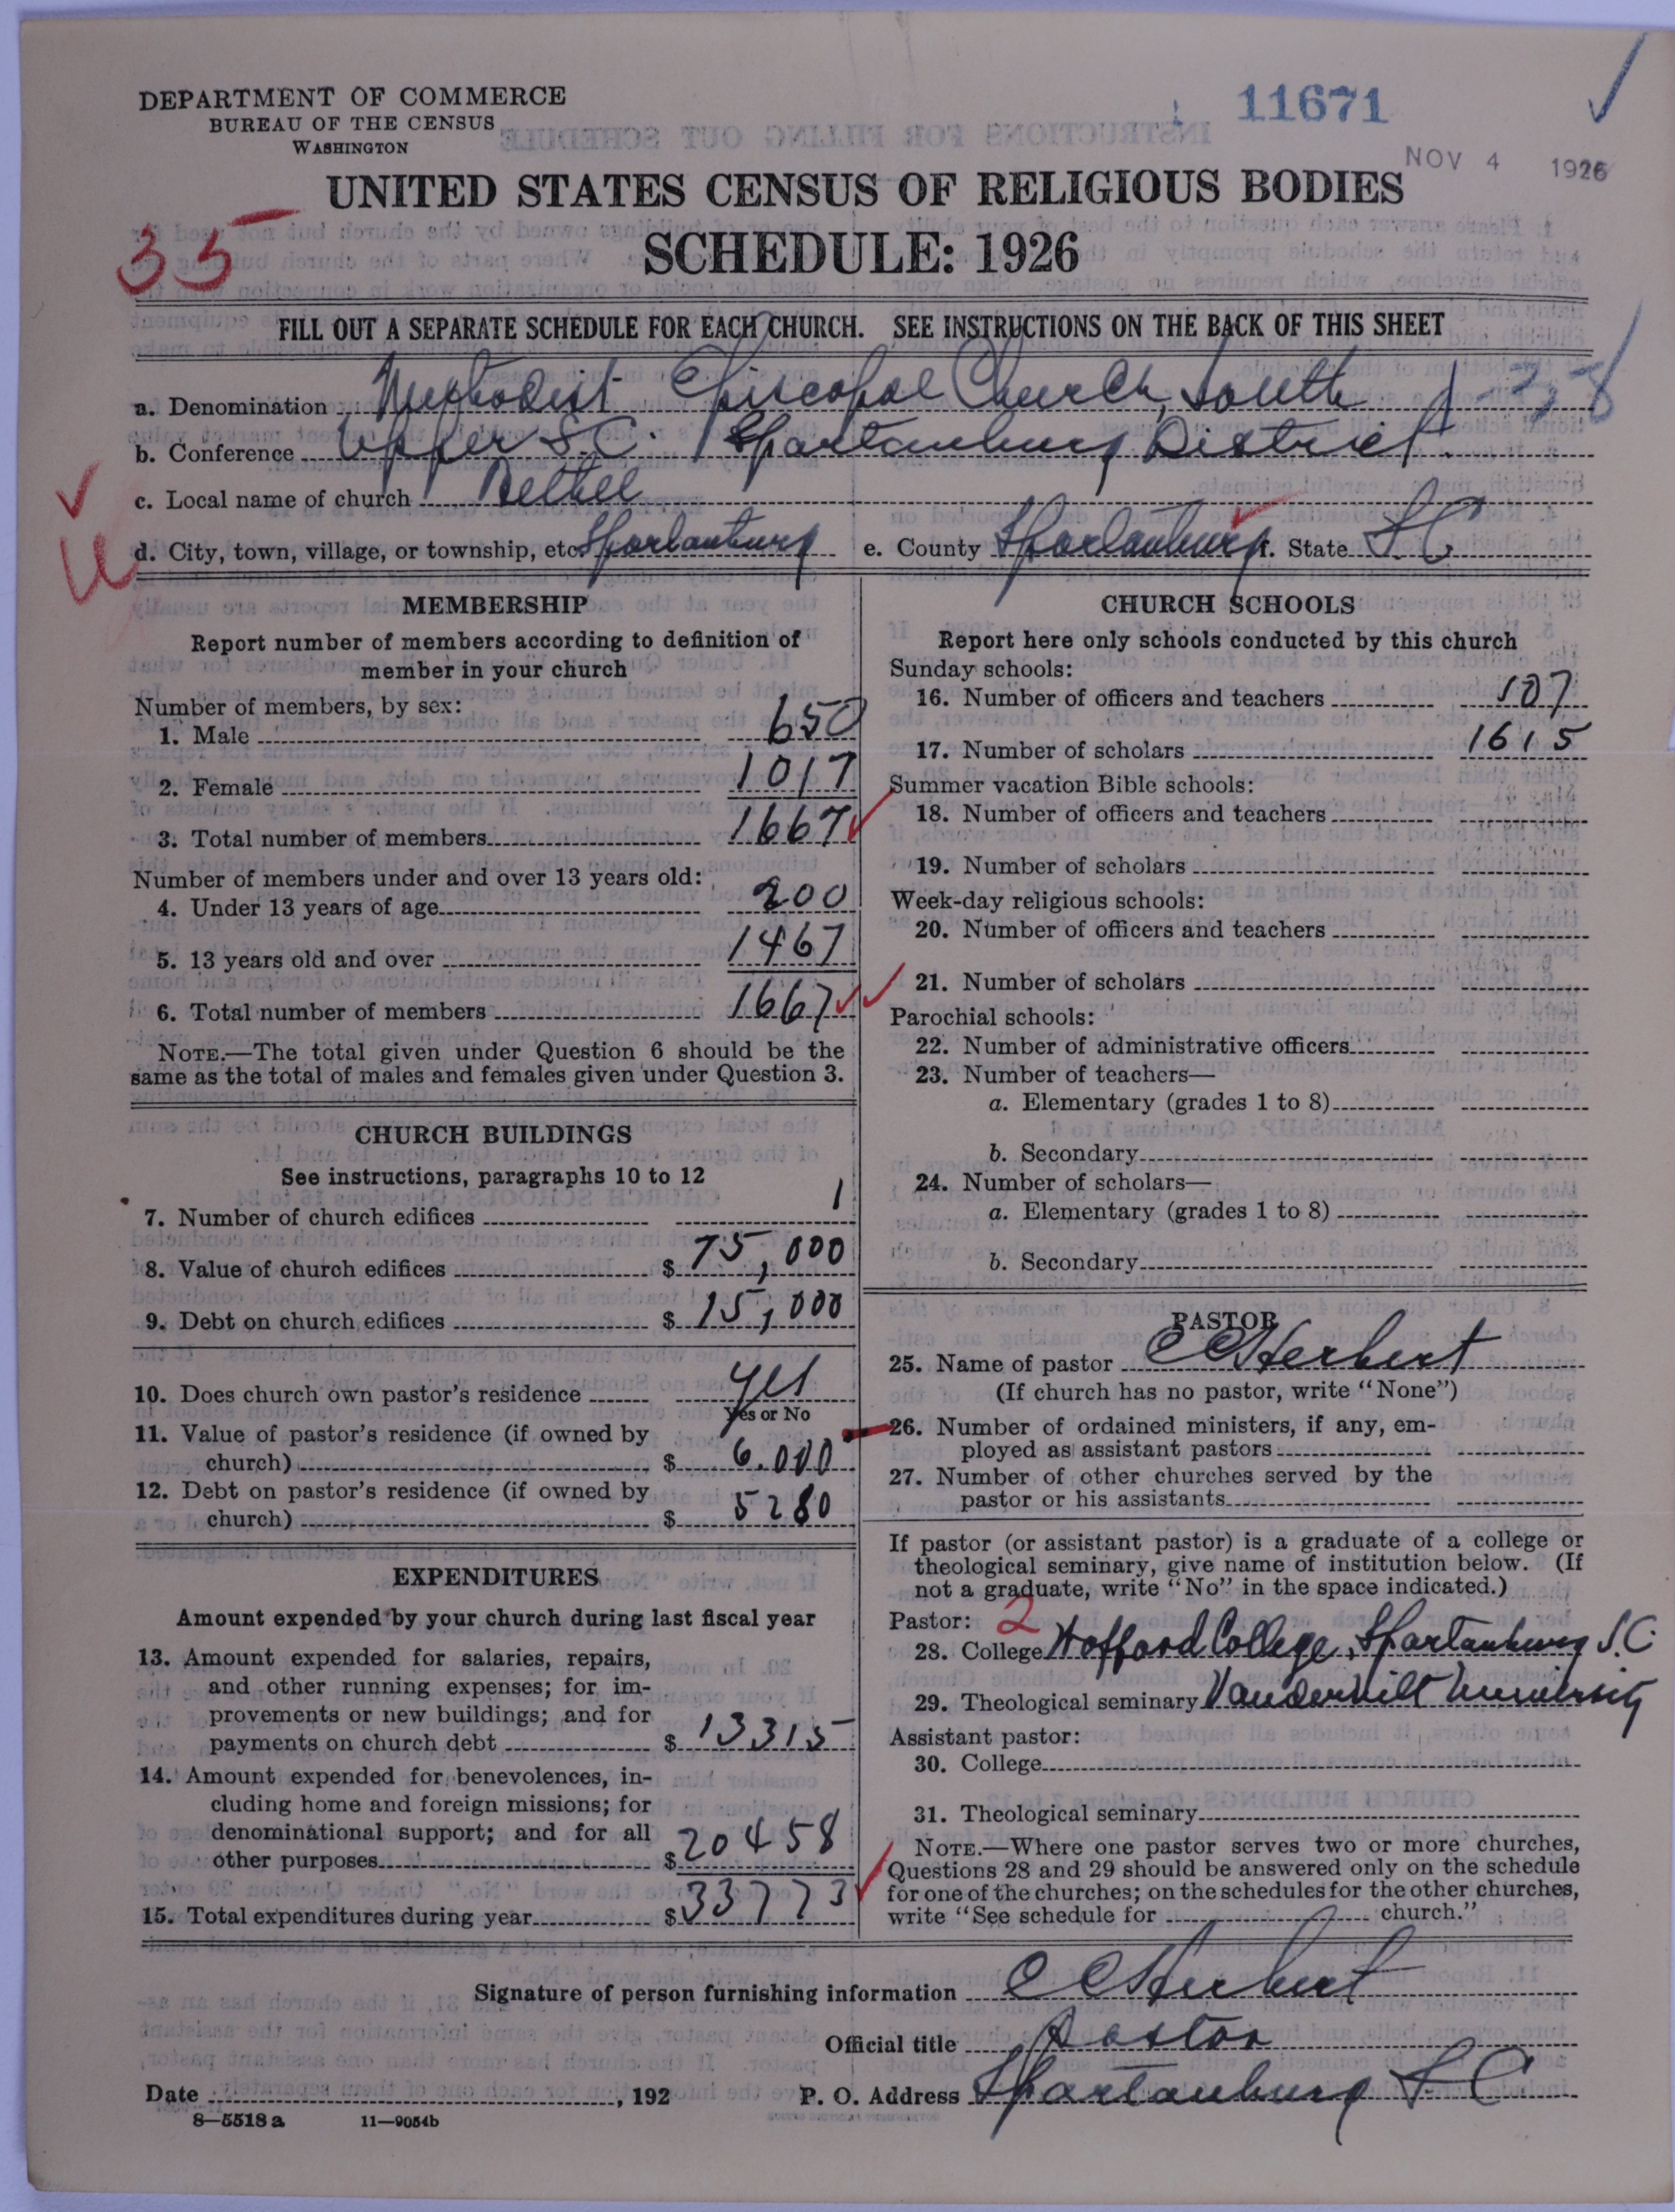 DEPARTMENT OF COMMERCE
BUREAU OF THE CENSUS
WASHINGTON
11671
NOV 4 1926
UNITED STATES CENSUS OF RELIGIOUS BODIES
SCHEDULE: 1926
35
FILL OUT A SEPARATE SCHEDULE FOR EACH CHURCH. SEE INSTRUCTIONS ON THE BACK OF THIS SHEET
a. Denomination Methodist Episcopal Church, South 1-38
b. Conference Upper S.C. Spartanburg District.
c. Local name of church Bethel
d. City, town, village, or township, etc. Spartanburg e. County Spartanburg f. State S C
MEMBERSHIP
Report number of members according to definition of
member in your church
Number of members, by sex:
1. Male 650
2. Female 1017
3. Total number of members 1667
Number of members under and over 13 years old:
4. Under 13 years of age 200
5. 13 years old and over 1467
6. Total number of members 1667
NOTE.—The total given under Question 6 should be the
same as the total of males and females given under Question 3.
CHURCH BUILDINGS
See instructions, paragraphs 10 to 12
7. Number of church edifices 1
8. Value of church edifices $ 75,000
9. Debt on church edifices $ 15,000
10. Does church own pastor's residence yes
Yes or No
11. Value of pastor's residence (if owned by
church) $ 6.000
12. Debt on pastor's residence (if owned by
church) $ 5280
EXPENDITURES
Amount expended by your church during last fiscal year
13. Amount expended for salaries, repairs,
and other running expenses; for im-
provements or new buildings; and for
payments on church debt $ 13315
14. Amount expended for benevolences, in-
cluding home and foreign missions; for
denominational support; and for all
other purposes $ 20458
15. Total expenditures during year $ 33773
CHURCH SCHOOLS
Report here only schools conducted by this church
Sunday schools:
16. Number of officers and teachers 107
17. Number of scholars 1615
Summer vacation Bible schools:
18. Number of officers and teachers
19. Number of scholars
Week-day religious schools:
20. Number of officers and teachers
21. Number of scholars
Parochial schools:
22. Number of administrative officers
23. Number of teachers—
a. Elementary (grades 1 to 8)
b. Secondary
24. Number of scholars—
a. Elementary (grades 1 to 8)
b. Secondary
PASTOR
25. Name of pastor C C Herbert
(If church has no pastor, write "None")
26. Number of ordained ministers, if any, em-
ployed as assistant pastors
27. Number of other churches served by the
pastor or his assistants
If pastor (or assistant pastor) is a graduate of a college or
theological seminary, give name of institution below. (If
not a graduate, write "No" in the space indicated.)
Pastor: 2
28. College Wofford College, Spartanburg S.C.
29. Theological seminary Vanderbilt University
Assistant pastor:
30. College
31. Theological seminary
NOTE.—Where one pastor serves two or more churches,
Questions 28 and 29 should be answered only on the schedule
for one of the churches; on the schedules for the other churches,
write "See schedule for church."
Signature of person furnishing information C C Herbert
Official title Pastor
Date , 192 P. O. Address Spartanburg S C
8—5518 a 11—9054b